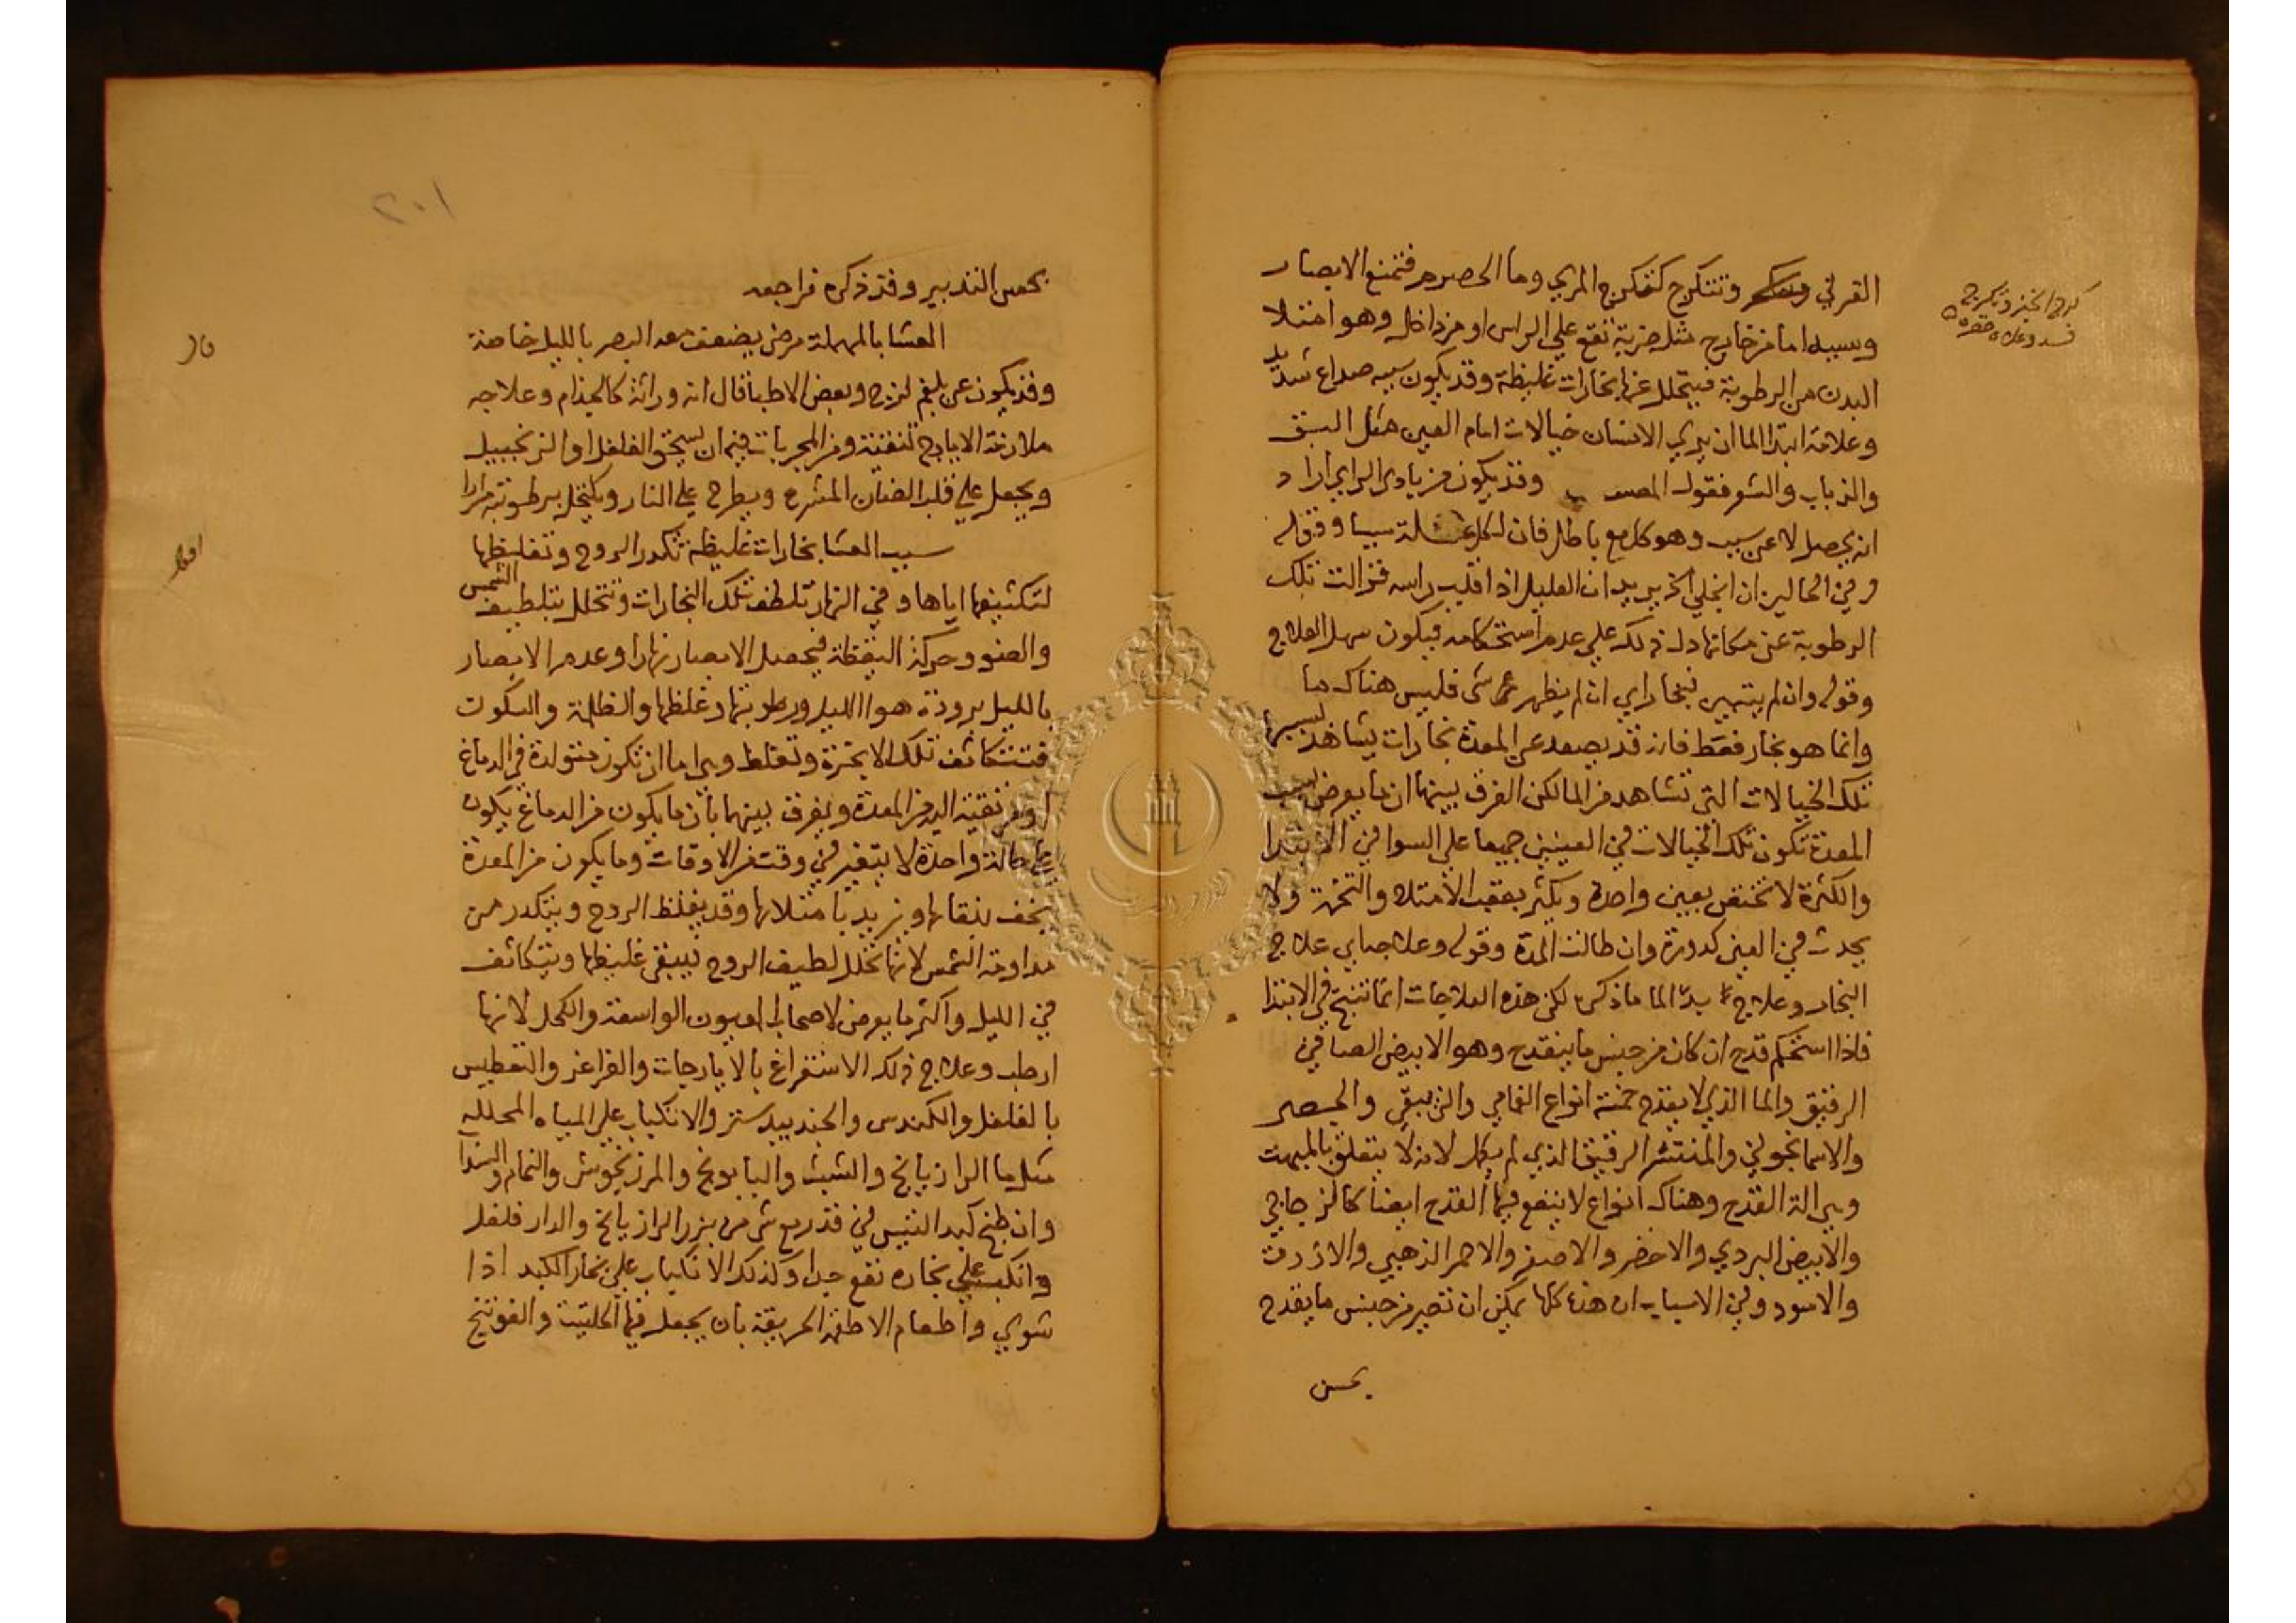 القرني وتتكرج كتكرج المري وما الحصرم فتمنع الابصار
وسببه اما من خارج مثل ضربة تقع علي الراس او من داخل وهو امتلا
البدن من الرطوبة فيتحلل عنها بخارات غليظة وقد يكون سببه صداع شديد
وعلامة ابتدا الما ان يري الانسان خيالات امام العين مثل البق
والذباب والشعر فقول المصـ وقد يكون من بادي الراي اراد
انه يحصل لا عن سبب وهو كلام باطل فان لكل علة سببا وقوله
وفي الحالين ان انجلي الخ يريد ان العليل اذا اقلب راسه فزالت تلك
الرطوبة عن مكانها دل ذلك علي عدم استحكامه فيكون سهل العلاج
وقوله وان لم يتهيى فبخار اي ان لم يظهر شي فليس هناك ما
وانما هو بخار فقط فانه قد يصعد عن المعدة بخارات يشاهد بسببها
تلك الخيالات التي تشاهد من الما لكن الفرق بينهما ان ما يعرض بسبب
المعدة تكون تلك الخيالات في العينين جميعا علي السوا في الابتدا
والكثرة لا تختص بعين واحدة ويكثر بعقب الامتلا والتخمة ولا
يحدث في العين كدورة وان طالت المدة وقوله وعلاجه اي علاج
البخار وعلاج بدئ الما ما ذكره لكن هذه العلاجات انما تنتج في الابتدا
فاذا استحكم قدح ان كان من جنس ما ينقدح وهو الابيض الصافي
الرقيق والما الذي لا يقدح خمسة انواع الغمامي والزيبقي والجصي
والاسمانجوني والمنتشر الرقيق الذي لم يكمل لانه لا يتعلق بالمهت
وهي الة القدح وهناك انواع لا ينفع فيها القدح ايضا كالزجاجي
والابيض البردي والاخضر والاصفر والاحمر الذهبي والازرق
والاسود وفي الاسباب ان هذه كلها يمكن ان تصير من جنس ما يقدح
بحسن
كرج الخبز وتكرج
فسد وعلاه خضرة
٢٠١
بحسن التدبير وقد ذكره فراجعه
العشا بالمهملة مرض يضعف معه البصر بالليل خاصة
قال
وقد يكون عن بلغم لزج وبعض الاطبا قال انه وراثة كالجذام وعلاجه
ملازمة الايارج لتنقيته ومن المجربات فيه ان يسحق الفلفل او الزنجبيل
ويجعل علي قلب الضان المشرح ويطرح علي النار ويكتحل برطوبته مرارا
اقول
سبب العشا بخارات غليظة تكدر الروح وتغليظها
لتكثيفها اياها وفي النهار تلطف تلك البخارات وتتحلل بتلطيف الشمس
والضو وحركة اليقظة فيحصل الابصار نهارا وعدم الابصار
بالليل برودة هوا الليل ورطوبتها وغلظها والظلمة والسكون
فتتكاثف تلك الابخرة وتغلظ وهي اما ان تكون متولدة في الدماغ
او مرتقية اليه من المعدة ويفرق بينهما بان ما يكون من الدماغ يكون
علي حالة واحدة لا يتغير في وقت من الاوقات وما يكون من المعدة
يخف بنقايها ويزيد بامتلايها وقد يغلظ الروح ويتكدر من
مداومة الشمس لانها تحلل لطيف الروح فيبقي غليظها ويتكاثف
في الليل واكثر ما يعرض لاصحاب العيون الواسعة والكحل لانها
ارطب وعلاج ذلك الاستفراغ بالايارجات والغراغر والتعطيس
بالفلفل والكندس والجندبيدستر والانكباب علي المياه المحللة
مثل ما الرازيانج والشبث والبابونج والمرزنجوش والنمام والسذاب
وان طبخ كبد التيس في قدر مع شي من بزر الرازيانج والدار فلفل
وانكب علي بخاره نفع جدا وكذلك الانكباب علي بخار الكبد اذا
شوي واطعام الاطعمة الحريفة بان يجعل فيها الحلتيت والفوتنج